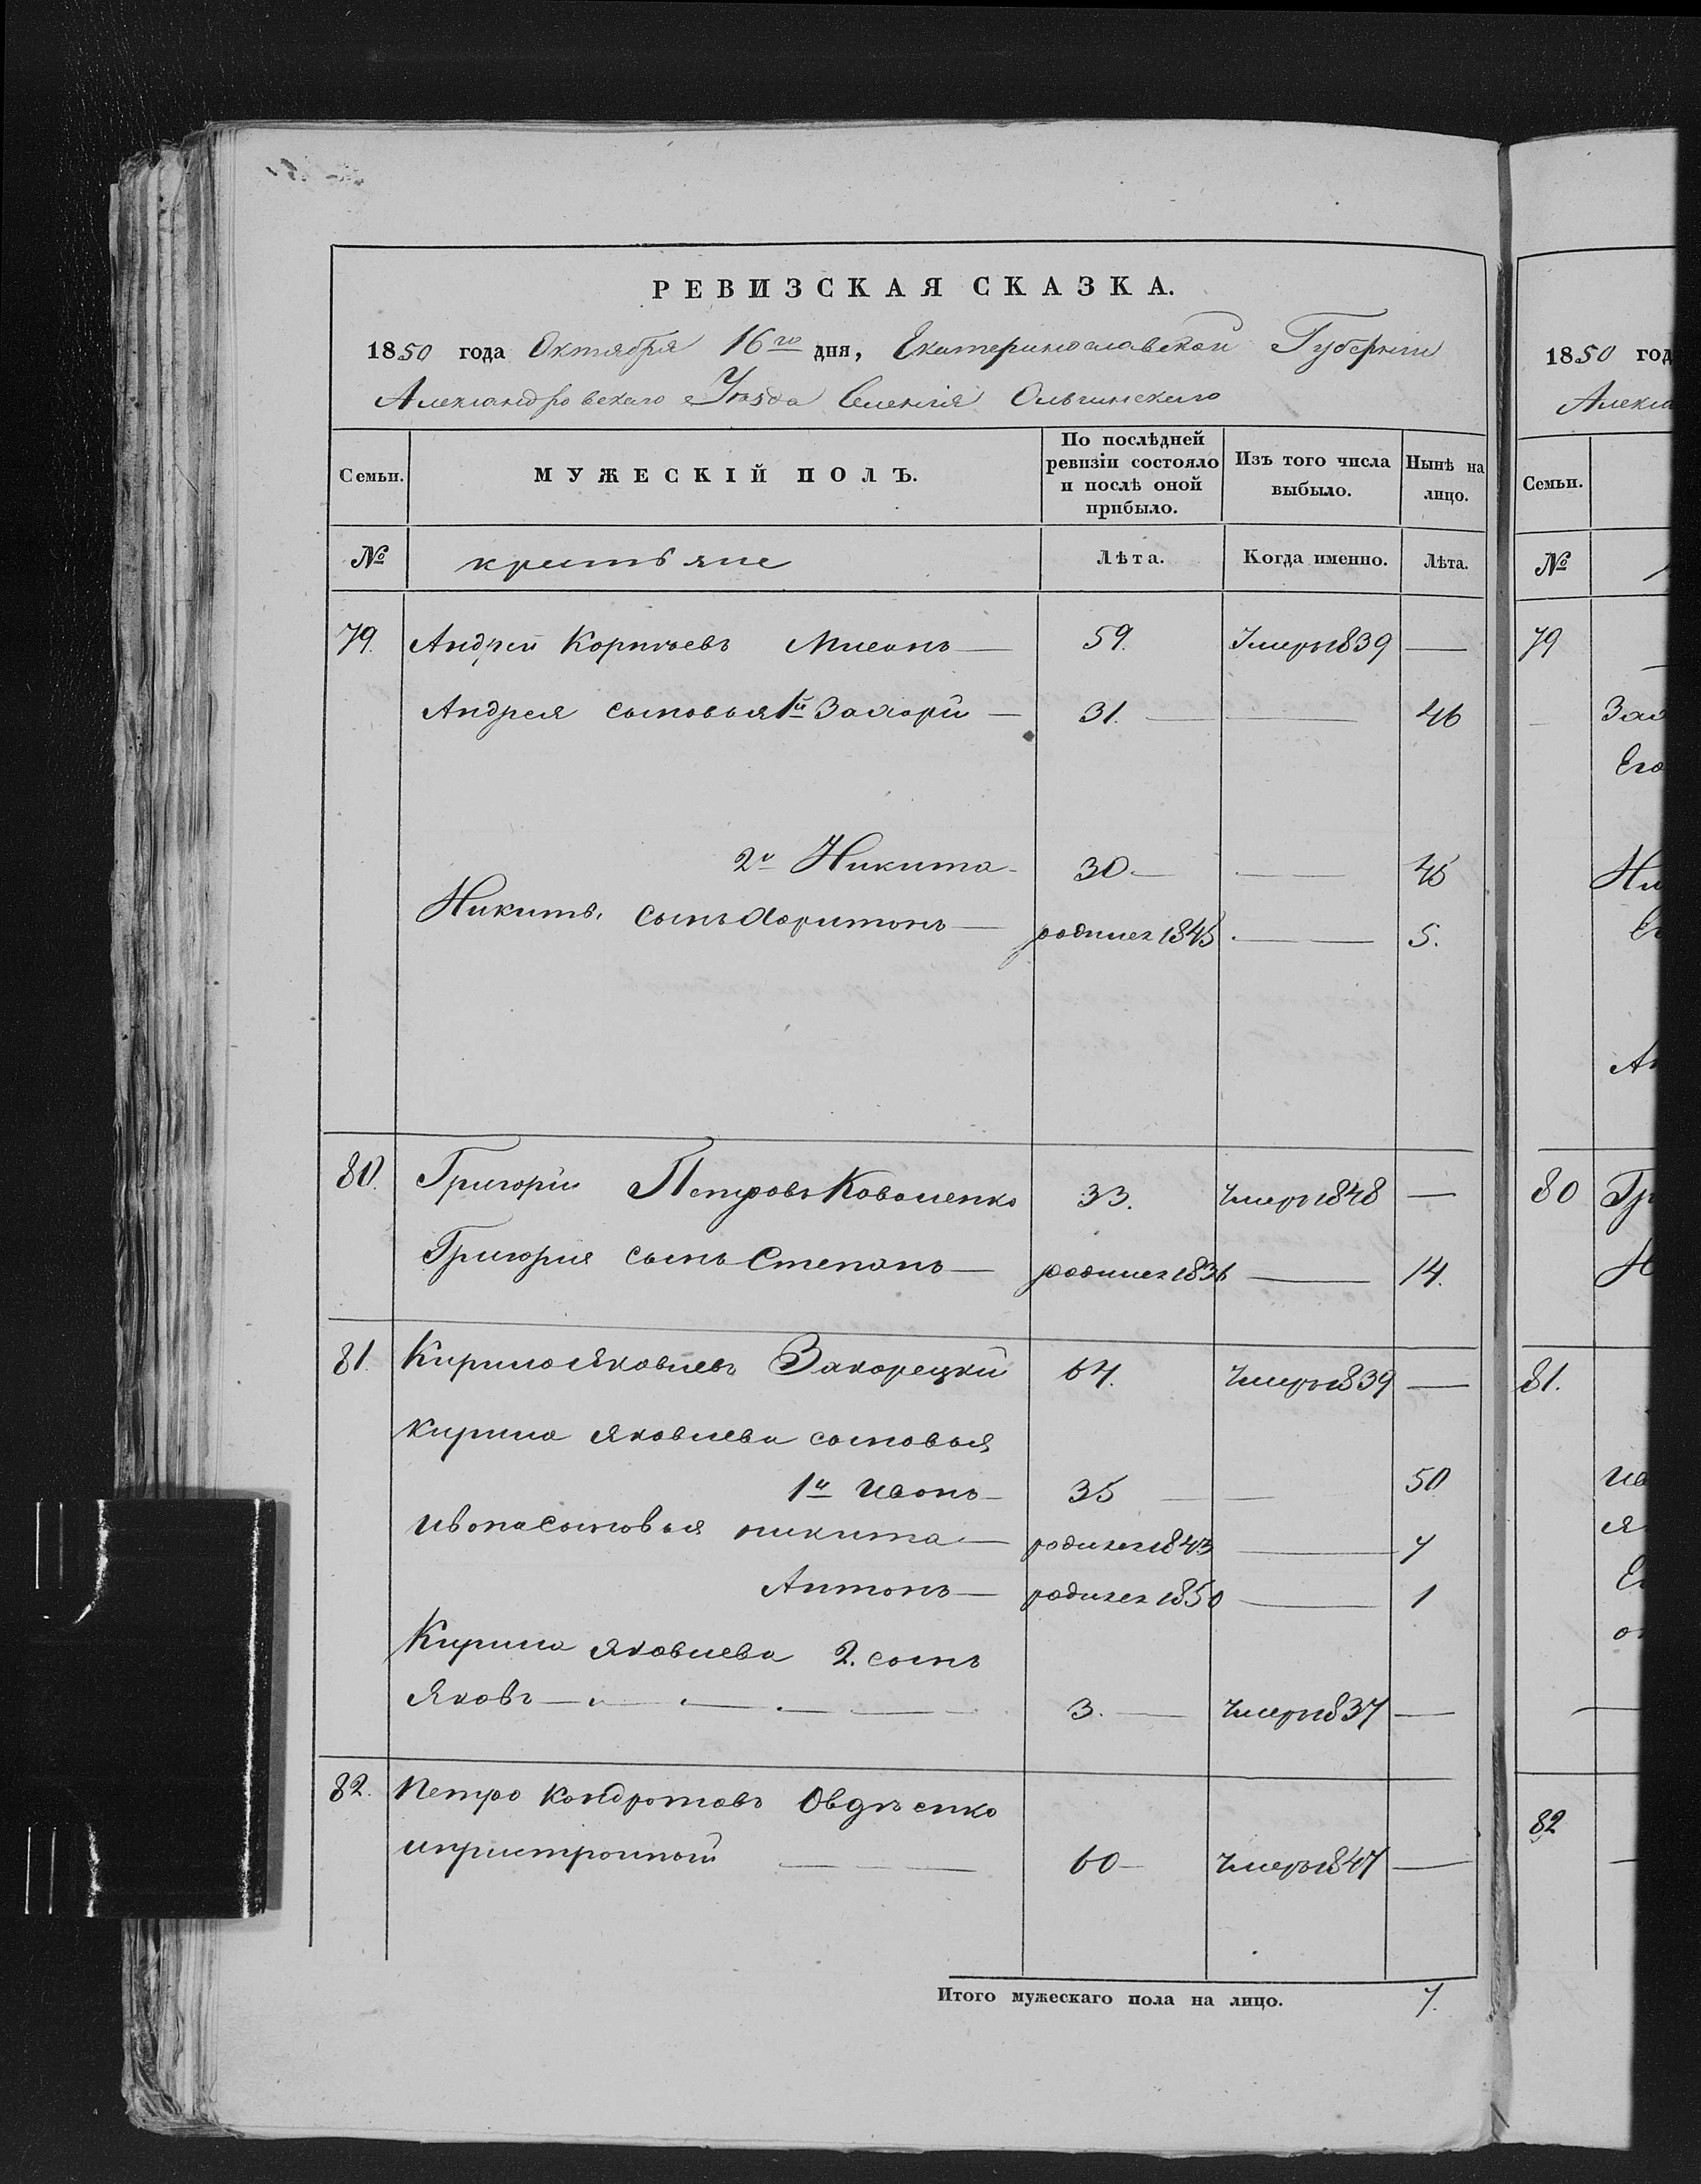 РЕВИЗСКАЯ СКАЗКА.
1850 года Октября 16го дня, Екатеринославской Губернии
Александровскаго Уѣзда Селения Ольгинскаго
Семьи. МУЖЕСКІЙ ПОЛЪ. По послѣдней ревизіи состояло и послѣ оной прибыло. Изъ того числа выбыло. Нынѣ на лицо.
№ крестьяне Лѣта. Когда именно. Лѣта.
79. Андрей Корнѣевъ 59. Умеръ 1839 —
Андрея сыновья 1й Захарій — 31. — — 46
2й Никита — 30 — — 45
Никиты сынъ Харитонъ — родился 1845 — 5.
80. Григорій Петровъ Коваленко 33. Умеръ 1848 —
Григорія сынъ Степанъ — родился 1836 — 14.
81. Кирило Яковлевъ Закорецкій 64. Умеръ 1839 —
Кирила Яковлева сыновья
1й Иванъ — 35 — — 50
Ивана сыновья Никита — родился 1843 — 7
Антонъ — родился 1850 — 1
Кирила Яковлева 2. сынъ
Яковъ — 3. — Умеръ 1837 —
82. Петро Кондратовъ Овдѣенко
60 — Умеръ 1847 —
Итого мужескаго пола на лицо. 7.
1850 год
Алекса
Семьи.
№
79
Зах
Его
Ни
80 Гр
81.
Ив
82